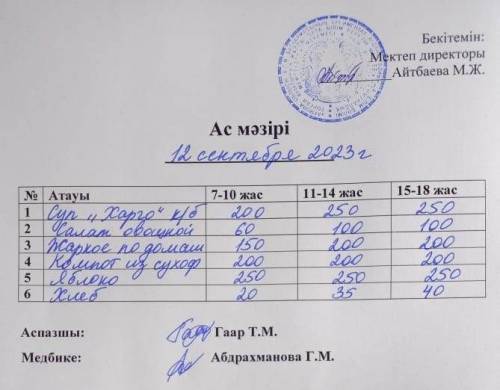 Бекітемін:
Мектеп директоры
Айтбаева М.Ж.
Ас мәзірі
12 сентября 2023 г
№ Атауы 7-10 жас 11-14 жас 15-18 жас
1 Суп „Харчо“ к/б 200 250 250
2 Салат овощной 60 100 100
3 Жаркое по домаш 150 200 200
4 Компот из сухоф 200 200 200
5 Яблоко 250 250 250
6 Хлеб 20 35 40
Аспазшы: Гаар Т.М.
Медбике: Абдрахманова Г.М.